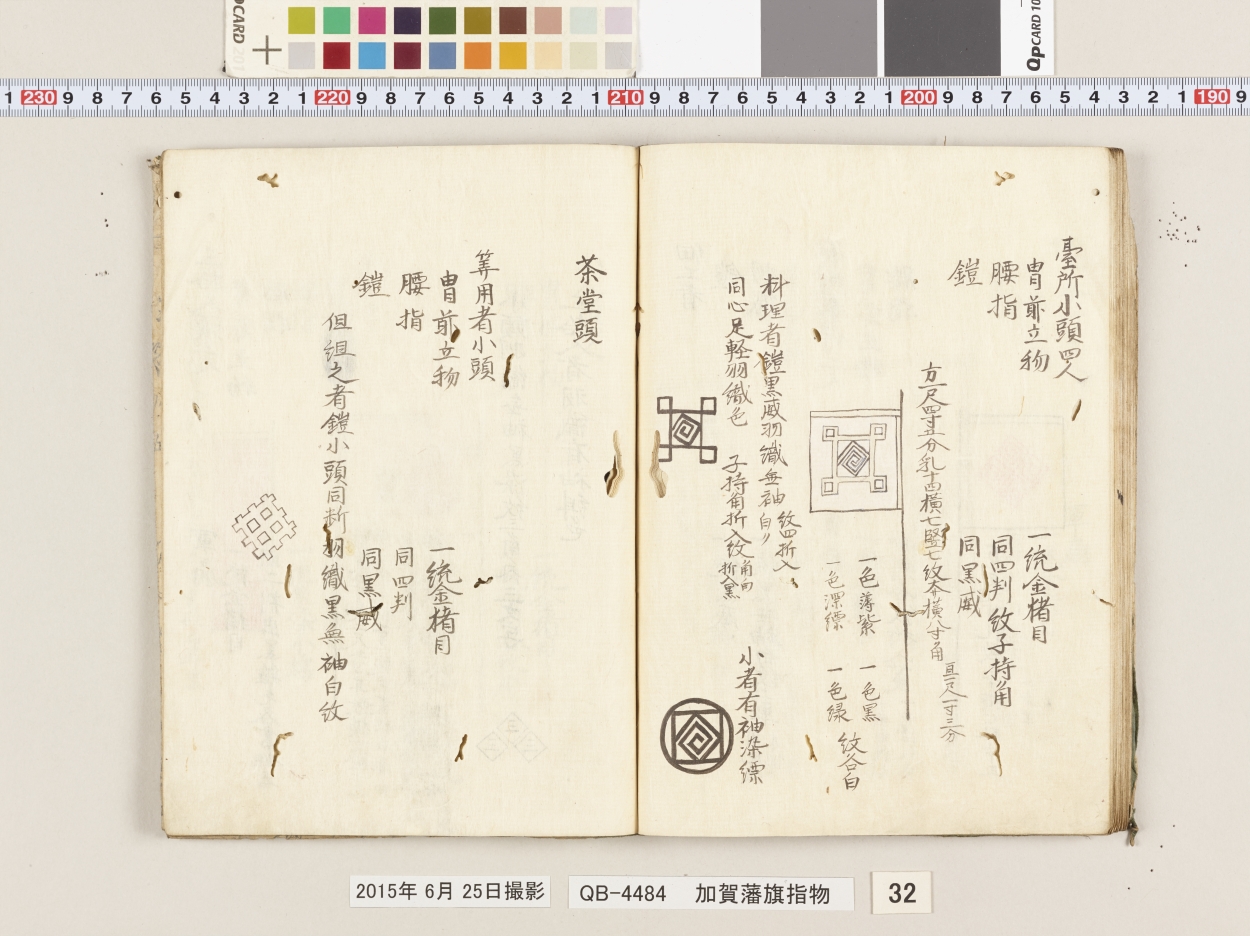 臺所小頭四人
冑前立物　一統金楮目
腰指　同四判 紋子持角
鎧　同黒威
方一尺四寸五分乳十四横七竪七紋本横八寸角
一色薄紫　一色黒
一色深縹　一色緑　紋各白
料理者鎧黒威羽織無袖
白〃
紋四折入
同心足軽羽織色　子持角折入紋
小者有袖染縹
茶堂頭
筭用者小頭
冑前立物　一統金楮目
腰指　同四判
鎧　同黒威
但組之者鎧小頭同断羽織黒無袖白紋
QPCARD 201
QPCARD 10
1 230 9 8 7 6 5 4 3 2 1 220 9 8 7 6 5 4 3 2 1 210 9 8 7 6 5 4 3 2 1 200 9 8 7 6 5 4 3 2 1 190 9
2015年 6月 25日撮影
QB-4484 加賀藩旗指物
32